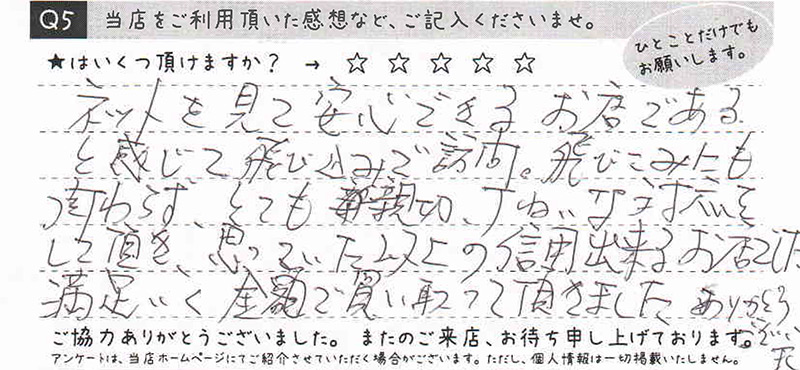 Q5 当店をご利用頂いた感想など、ご記入くださいませ。
ひとことだけでも
お願いします。
★はいくつ頂けますか? → ☆ ☆ ☆ ☆ ☆
ネットを見て安心できるお店である
と感じて飛び込みで訪問。飛びこみにも
関わらず、とても親切、ていねいな対応を
して頂き、思っていた以上の信用出来るお店でした
満足いく金額で買い取って頂きました。ありがとう
ございました
ご協力ありがとうございました。またのご来店、お待ち申し上げております。
アンケートは、当店ホームページにてご紹介させていただく場合がございます。ただし、個人情報は一切掲載いたしません。